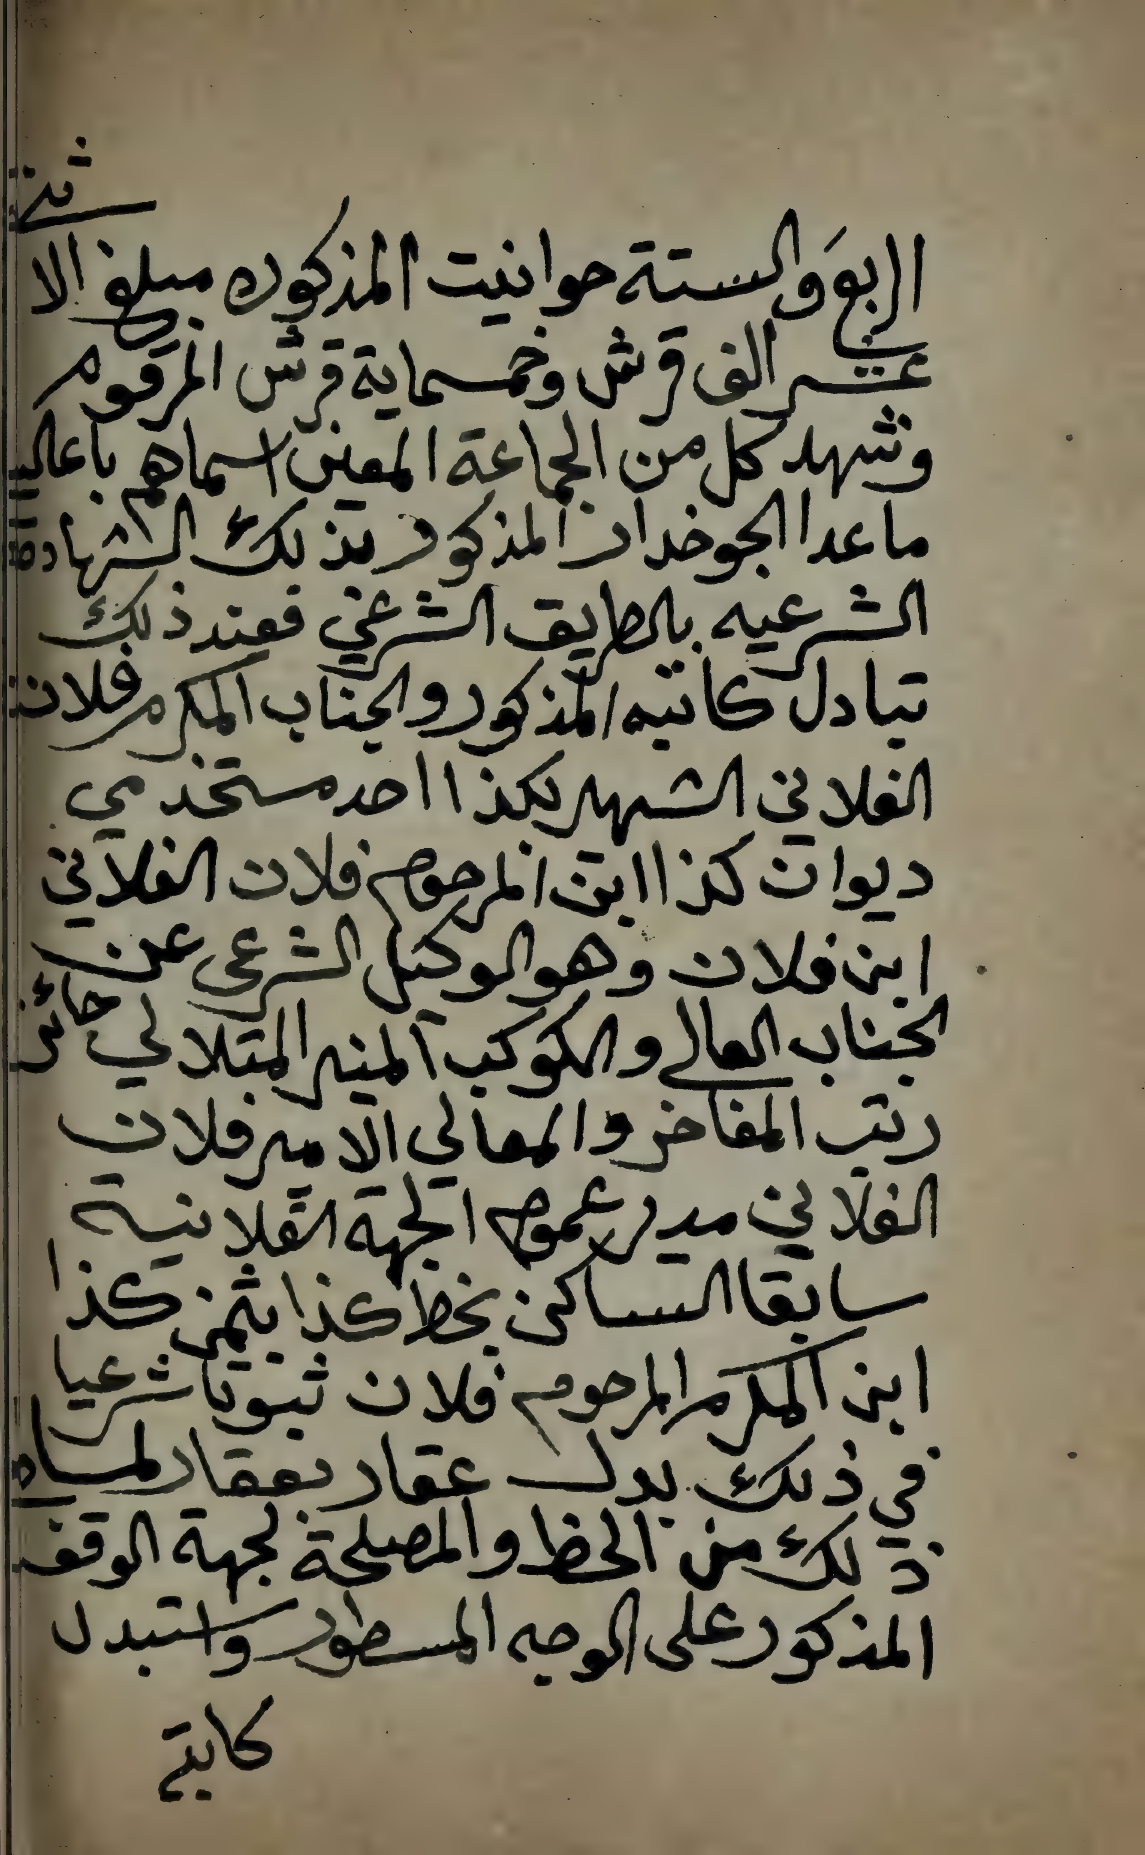 الربع والستة حوانيت المذكوره مبلغ الاثني
عشر الف قرش وخمسماية قرش المرقوم
وشهد كل من الجماعة المعين اسماهم باعاليه
ماعدا الجوخدار المذكور بذلك الشهادة
الشرعيه بالطريق الشرعي فعند ذلك
تبادل كاتبه المذكور والجناب المكرم فلان
الفلاني الشهير بكذا احد مستخدمي
ديوان كذا ابن المرحوم فلان الفلاني
ابن فلان وهو الوكيل الشرعى عن
الجناب العالي والكوكب المنير المتلالي حائز
رتب المفاخر والمعالى الامير فلان
الفلاني مدير عموم الجهة الفلانية
سابقا الساكن بخط كذا بثمن كذا
ابن المكرم المرحوم فلان ثبوتا شرعيا
في ذلك بدل عقار بعقار لما راه
ذلك من الحظ والمصلحة لجهة الوقف
المذكور على الوجه المسطور واستبدل
كاتبه